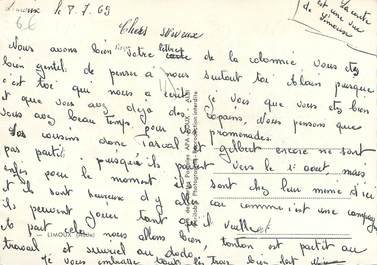 Limoux le 8.7.69
la carte
est une vue
de Limoux
Chers neveux
Nous avons bien reçu votre lettre de la colonnie vous etes
bien gentil de penser a nous surtout toi Alain puisque
c'est toi qui nous a écrit je vois que vous etes bien
et que vous avez déjà des copains, Nous pensons que
vous avez beau temps pour vos promenades.
Vos cousins donc Pascal et gilbert encore ne sont
pas partis puisqu'ils partent vers le 1er aout, mais
enfin pour le moment ils sont chez leur mémé d'ici
et ils sont heureux d'y aller car comme c'est une campagne
ils peuvent jouer tant qu'il veulent
A part cela nous allons bien, tonton est partit au
travail et serviel au dodo
Je vous embrasse tous les Trois bien fort
LIMOUX (Aude)